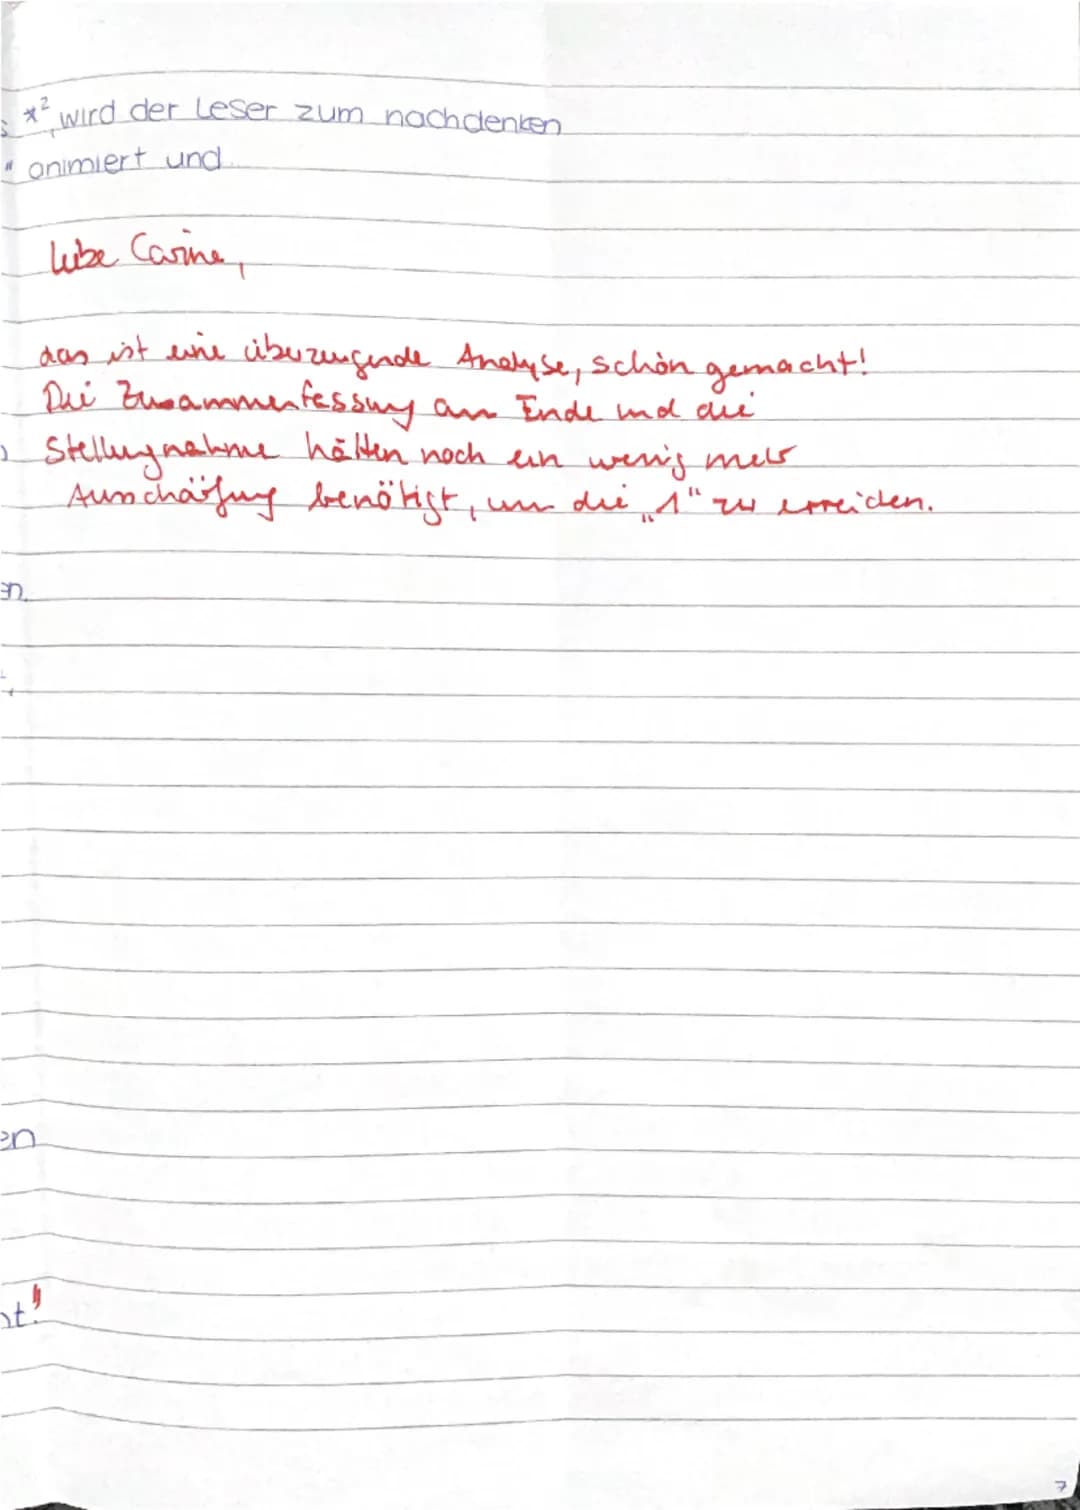 *² wird der Leser zum nachdenken
animiert und
Liebe Carina,
das ist eine überzeugende Analyse, schön gemacht!
Die Zusammenfassung am Ende und die
Stellungnahme hätten noch ein wenig mehr
Ausschärfung benötigt, um die „1" zu erreichen.
en
en
st!
7